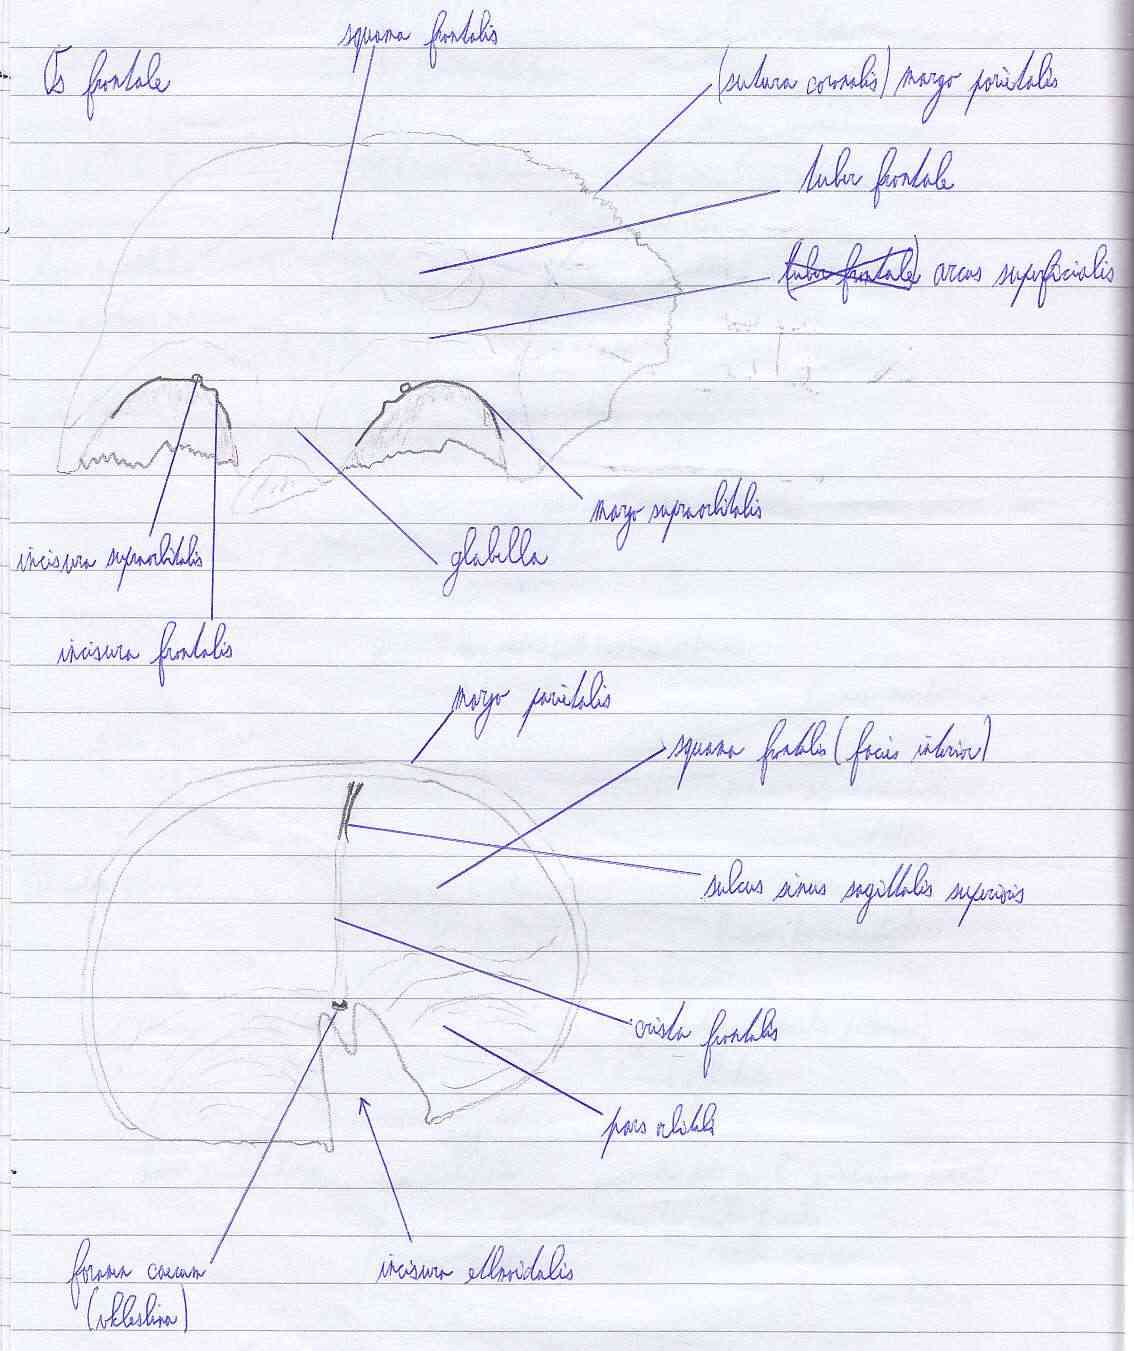 squama frontalis
Os frontale
(sutura coronalis) margo parietalis
tuber frontale
(tuber frontale) arcus superficialis
margo supraorbitalis
incisura supraorbitalis
glabella
incisura frontalis
margo parietalis
squama frontalis (facies interior)
sulcus sinus sagittalis superioris
crista frontalis
pars orbitalis
foramen caecum
incisura ethmoidalis